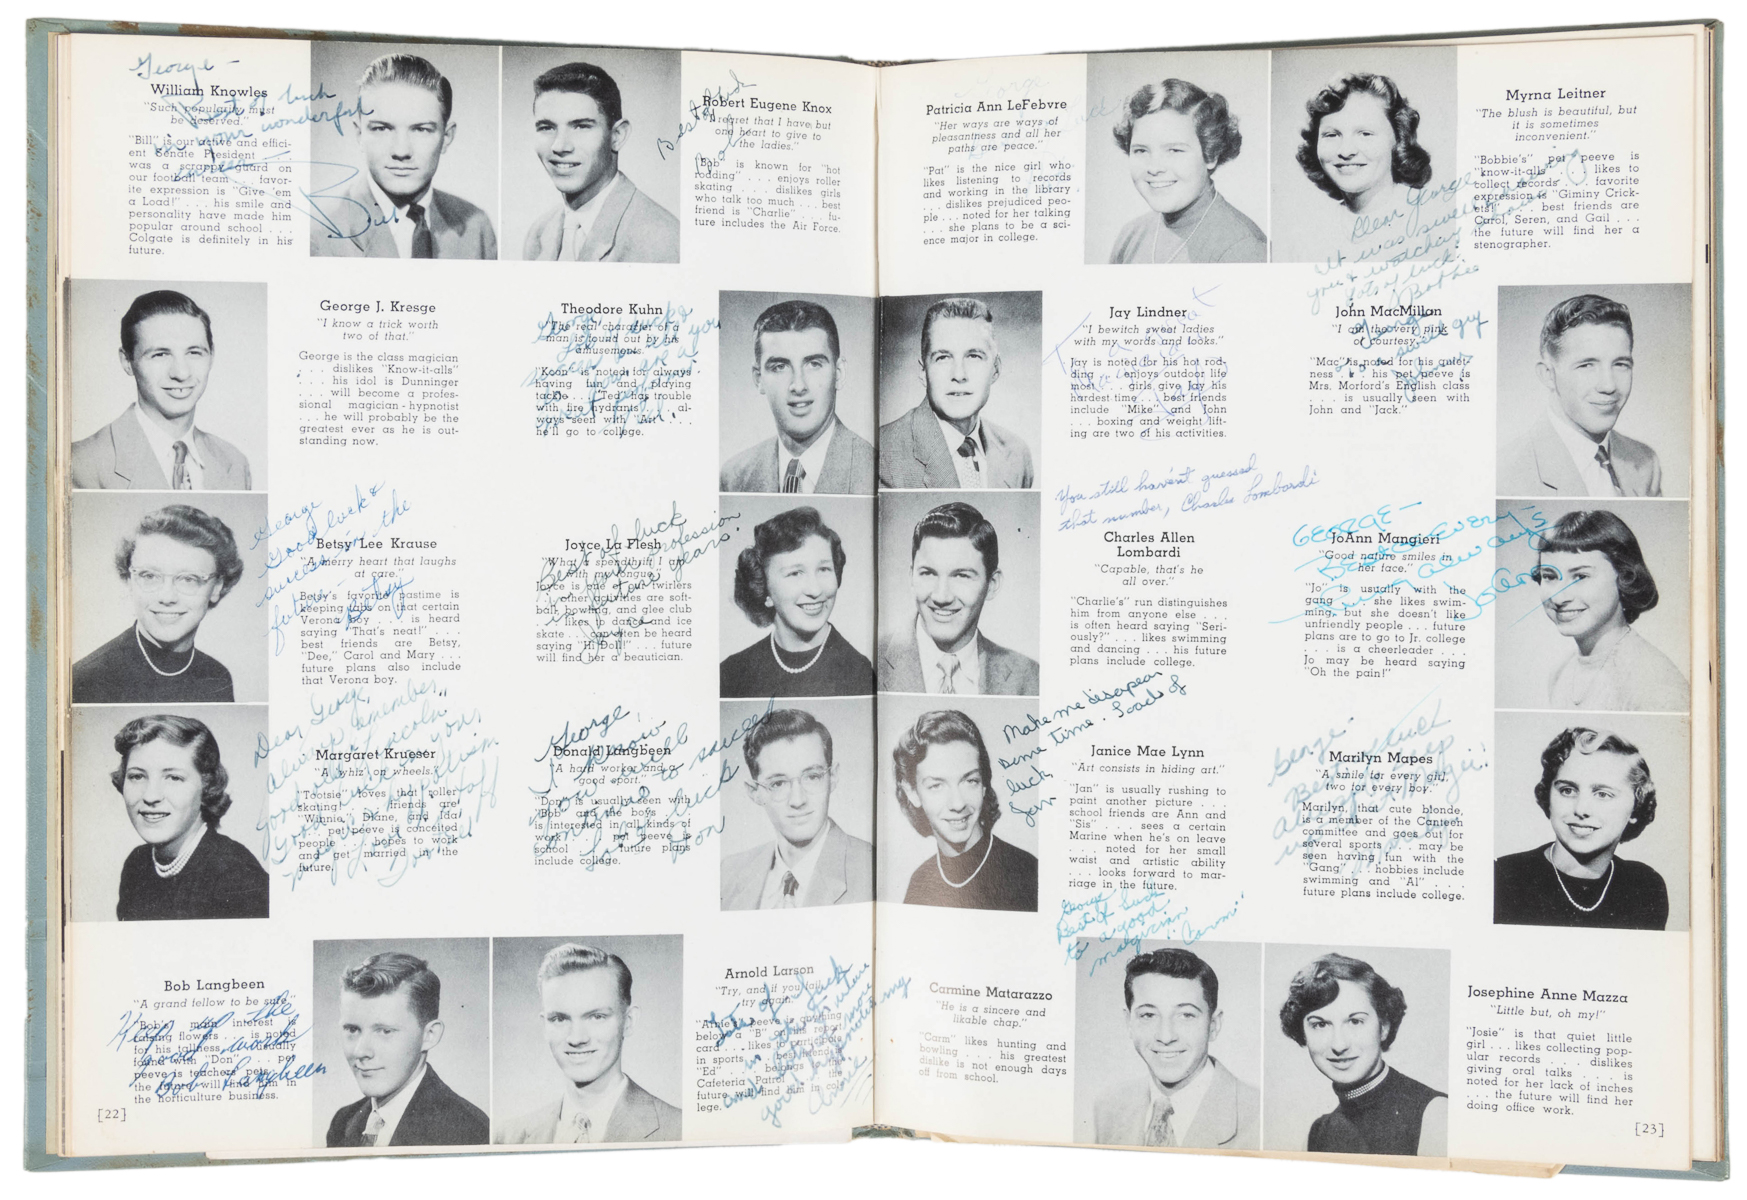 George -
William Knowles
"Such popularity must
be deserved."
Best of luck
in your wonderful
career
Bill
"Bill" is our active and effici-
ent Senate President . . .
was a scrappy guard on
our football team . . . favor-
ite expression is "Give 'em
a Load!" . . . his smile and
personality have made him
popular around school . . .
Colgate is definitely in his
future.
Robert Eugene Knox
"I regret that I have but
one heart to give to
the ladies."
Best of luck
Bob
"Bob" is known for "hot
rodding" . . . enjoys roller
skating . . . dislikes girls
who talk too much . . . best
friend is "Charlie" . . . fu-
ture includes the Air Force.
George J. Kresge
"I know a trick worth
two of that."
George is the class magician
. . . dislikes "Know-it-alls"
. . . his idol is Dunninger
. . . will become a profes-
sional magician-hypnotist
. . . he will probably be the
greatest ever as he is out-
standing now.
Theodore Kuhn
"The real character of a
man is found out by his
amusements.
George
"Koon" is noted for always
having fun and playing
tackle . . . "Ted" has trouble
with fire hydrants . . . al-
ways seen with "Art" . . .
he'll go to college.
George
Good luck &
success in the
future
Betsy
Betsy Lee Krause
"A merry heart that laughs
at care."
Betsy's favorite pastime is
keeping tabs on that certain
Verona boy . . . is heard
saying "That's neat!" . . .
best friends are Betsy,
"Dee," Carol and Mary . . .
future plans also include
that Verona boy.
Joyce La Flesh
"What a spendthrift I am
with my tongue."
Best of luck
in your profession
Joyce is one of our twirlers
. . . other activities are soft-
ball, bowling, and glee club
. . . likes to dance and ice
skate . . . can often be heard
saying "Hi Doll!" . . . future
will find her a beautician.
Dear George,
Always remember
Margaret Krueser
"A whiz on wheels."
"Tootsie" loves that roller
skating! . . . friends are
"Winnie," Diane, and Ida
. . . pet peeve is conceited
people . . . hopes to work
and get married in the
future.
George,
I know
you will
succeed
Don
Donald Langbeen
"A hard worker and a
good sport."
"Don" is usually seen with
"Bob" and the boys . . .
is interested in all kinds of
work . . . pet peeve is
school . . . future plans
include college.
Bob Langbeen
"A grand fellow to be sure."
"Bob's" main interest is
raising flowers . . . is noted
for his tallness . . . usually
found with "Don" . . . pet
peeve is teachers' pets . . .
the future will find him in
the horticulture business.
Keep up the
good work
Bob Langbeen
Arnold Larson
"Try, and if you fail,
try again."
"Arnie's" peeve is anything
below a "B" on his report
card . . . likes to participate
in sports . . . best friend is
"Ed" . . . belongs to the
Cafeteria Patrol . . . the
future will find him in col-
lege.
Lots of luck
in the future
Arnie
[22]
Patricia Ann LeFebvre
"Her ways are ways of
pleasantness and all her
paths are peace."
"Pat" is the nice girl who
likes listening to records
and working in the library
. . . dislikes prejudiced peo-
ple . . . noted for her talking
. . . she plans to be a sci-
ence major in college.
Myrna Leitner
"The blush is beautiful, but
it is sometimes
inconvenient."
"Bobbie's" pet peeve is
"know-it-alls" . . . likes to
collect records . . . favorite
expression is "Giminy Crick-
ets!" . . . best friends are
Carol, Seren, and Gail . . .
the future will find her a
stenographer.
Dear George
It was swell knowing
you & watching
Lots of luck
Bobbie
Jay Lindner
"I bewitch sweet ladies
with my words and looks."
Jay is noted for his hot rod-
ding . . . enjoys outdoor life
most . . . girls give Jay his
hardest time . . . best friends
include "Mike" and John
. . . boxing and weight lift-
ing are two of his activities.
John MacMillan
"I am the very pink
of courtesy."
George
swell guy
"Mac" is noted for his quiet-
ness . . . his pet peeve is
Mrs. Morford's English class
. . . is usually seen with
John and "Jack."
You still haven't guessed
that number, Charles Lombardi
Charles Allen
Lombardi
"Capable, that's he
all over."
"Charlie's" run distinguishes
him from anyone else . . .
is often heard saying "Seri-
ously?" . . . likes swimming
and dancing . . . his future
plans include college.
GEORGE-
JoAnn Mangieri
"Good nature smiles in
her face."
"Jo" is usually with the
gang . . . she likes swim-
ming, but she doesn't like
unfriendly people . . . future
plans are to go to Jr. college
. . . is a cheerleader . . .
Jo may be heard saying
"Oh the pain!"
Make me disapear
some time. Loads of
luck
Jan
Janice Mae Lynn
"Art consists in hiding art."
"Jan" is usually rushing to
paint another picture . . .
school friends are Ann and
"Sis" . . . sees a certain
Marine when he's on leave
. . . noted for her small
waist and artistic ability
. . . looks forward to mar-
riage in the future.
George
Best
Marilyn Mapes
"A smile for every girl,
two for every boy."
Marilyn, that cute blonde,
is a member of the Canteen
committee and goes out for
several sports . . . may be
seen having fun with the
"Gang" . . . hobbies include
swimming and "Al" . . .
future plans include college.
George
Best of luck
to a good
magician
"Carm"
Carmine Matarazzo
"He is a sincere and
likable chap."
"Carm" likes hunting and
bowling . . . his greatest
dislike is not enough days
off from school.
Josephine Anne Mazza
"Little but, oh my!"
"Josie" is that quiet little
girl . . . likes collecting pop-
ular records . . . dislikes
giving oral talks . . . is
noted for her lack of inches
. . . the future will find her
doing office work.
[23]